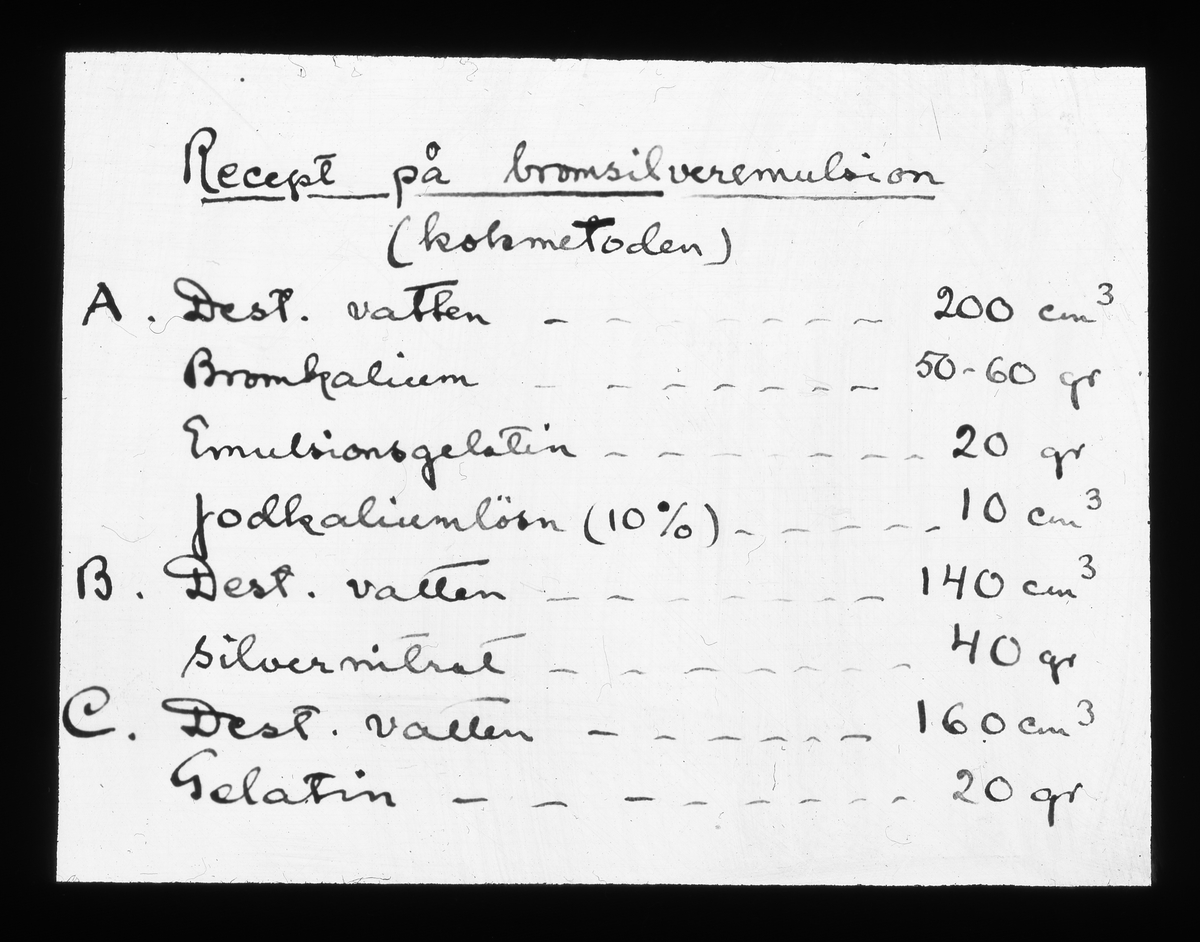 Recept på bromsilveremulsion
(kokmetoden)
A. Dest. vatten - - - - - - - 200 cm³
Bromkalium - - - - - - - 50-60 gr
Emulsionsgelatin - - - - - - - 20 gr
Jodkaliumlösn (10%) - - - - - - 10 cm³
B. Dest. vatten - - - - - - - 140 cm³
Silvernitrat - - - - - - - 40 gr
C. Dest. vatten - - - - - - - 160 cm³
Gelatin - - - - - - - - 20 gr